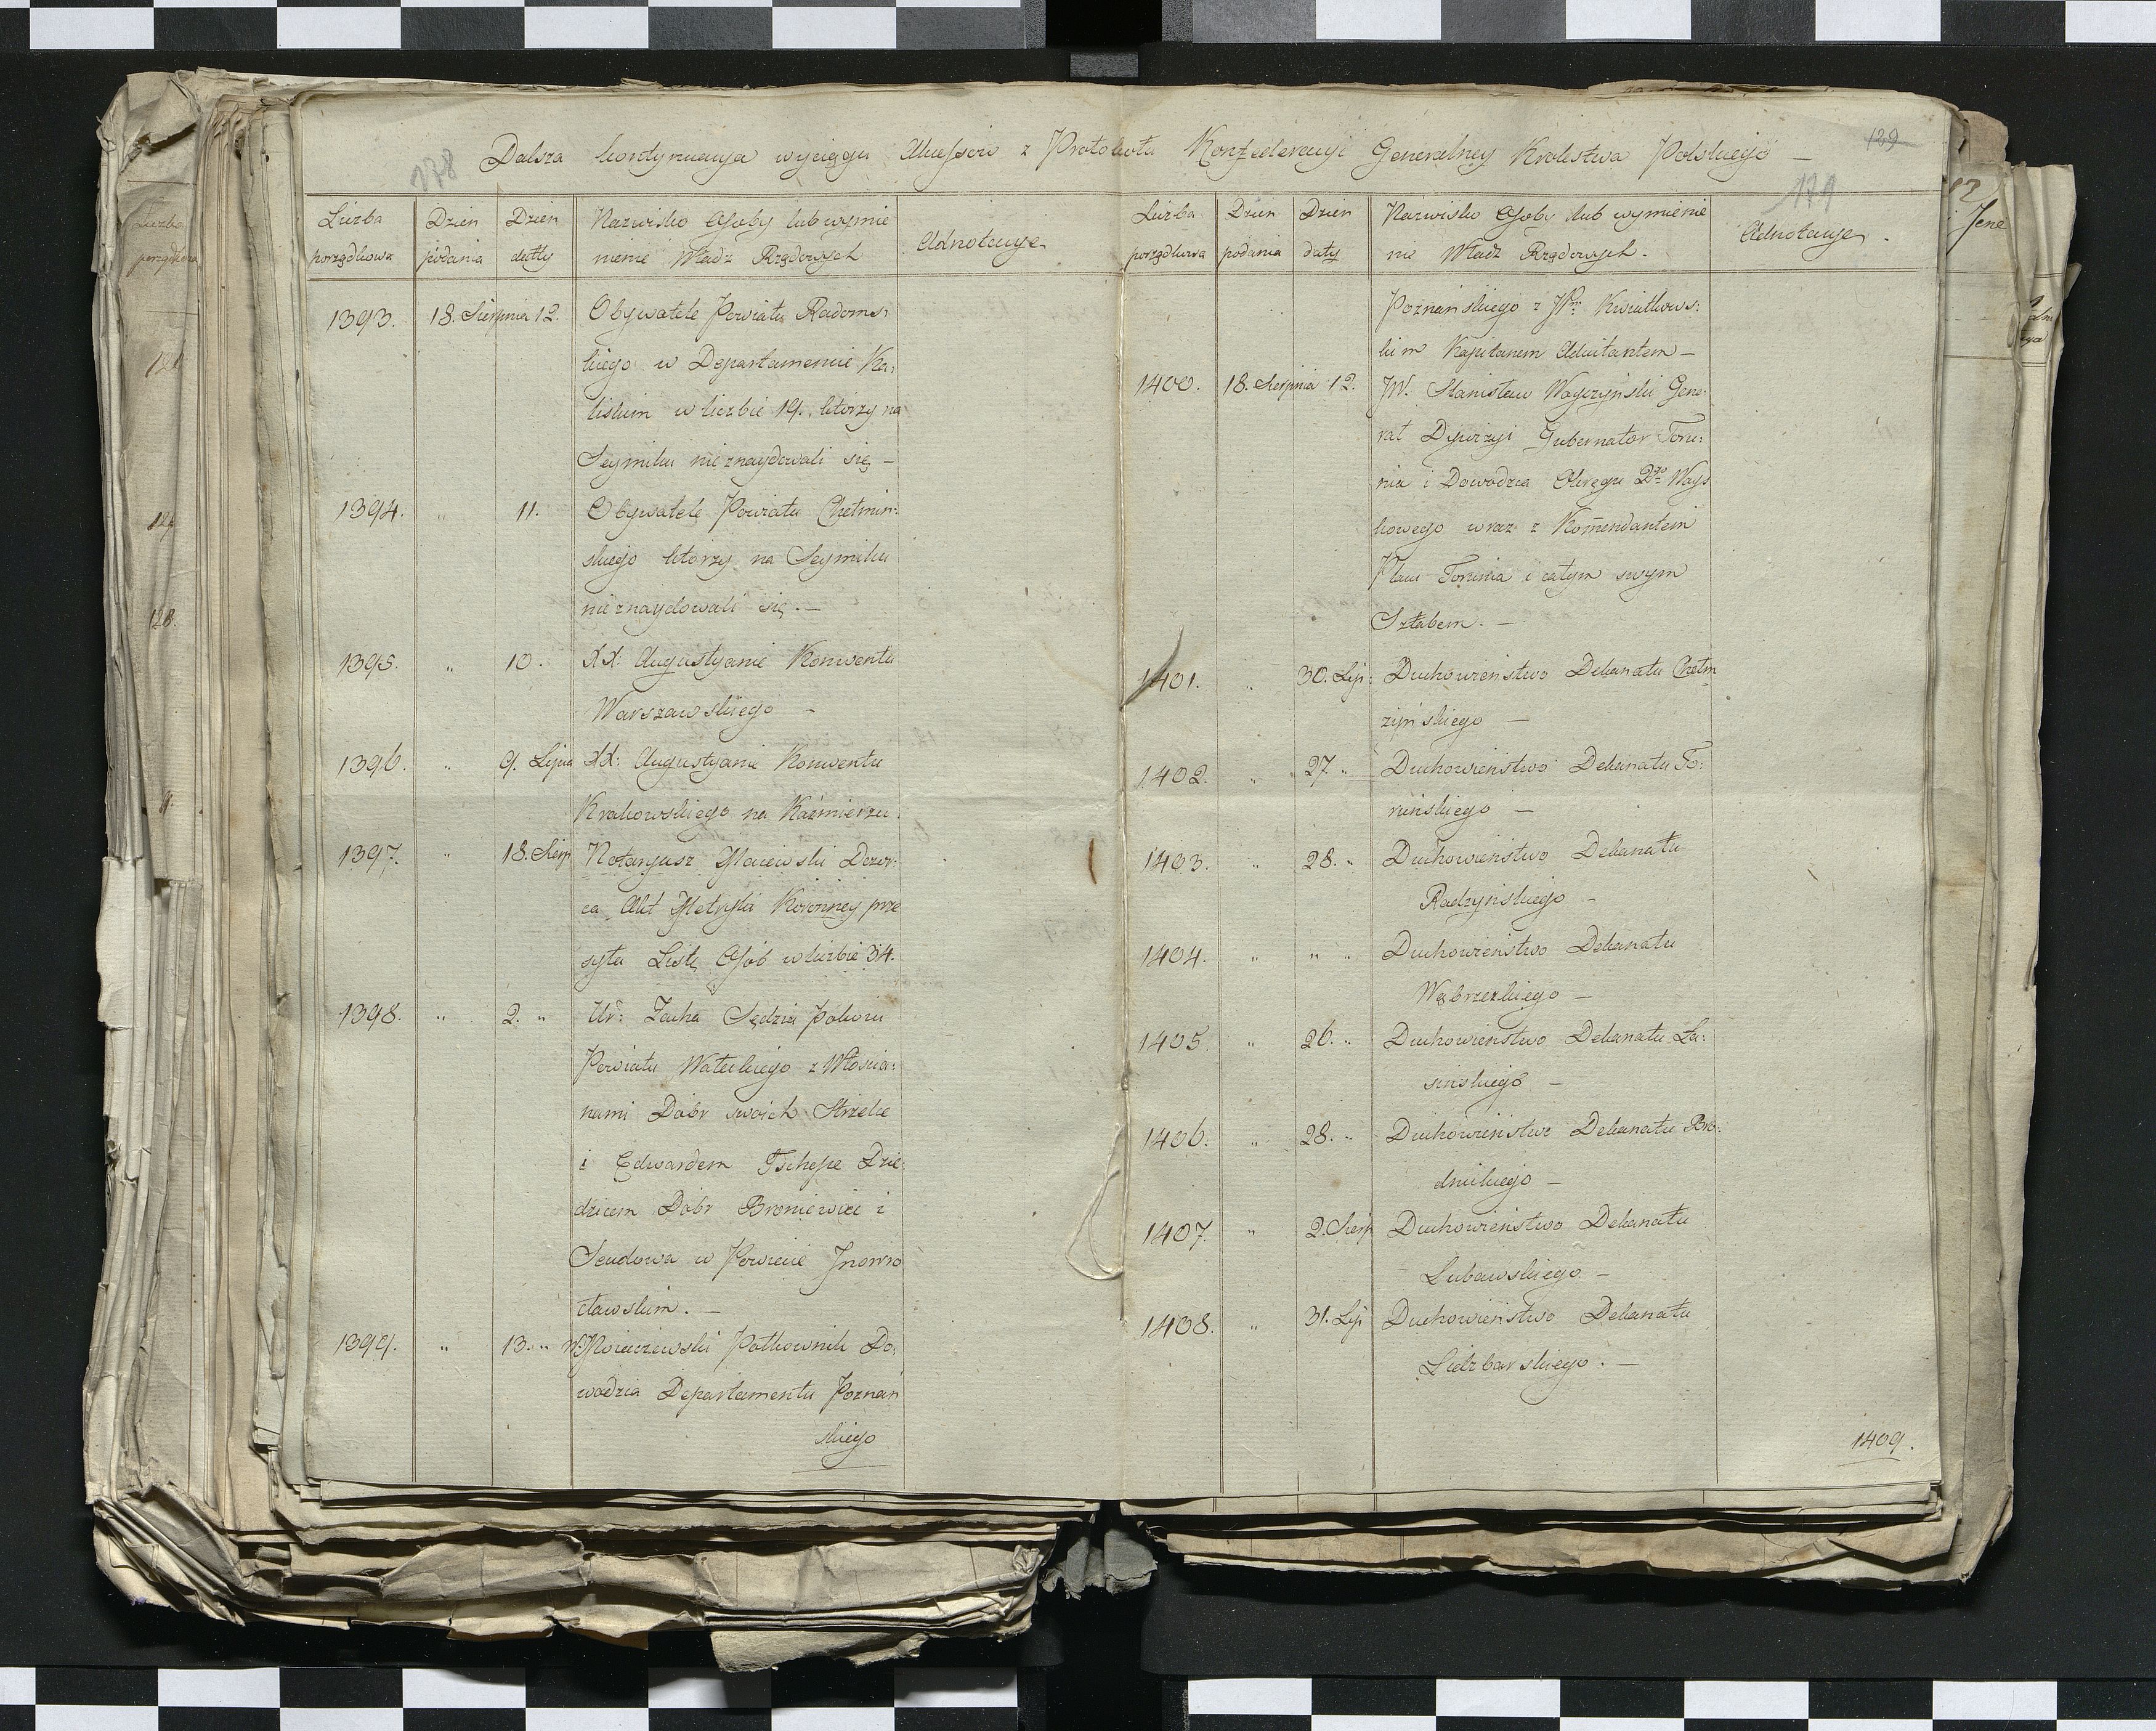 Dalsza kontynuacya wyciągu Akcessow z Protokołu Konfederacyi Generalney Krolestwa Polskiego —
178
129
179
Liczba porządkowa
Dzien podania
Dzien datty
Nazwisko Osoby lub wymie
nienie Władz Rządowych
Adnotacye
1393. 18. Sierpnia 12. Obywatele Powiatu Radoms:
kiego w Departamencie Ka:
liskim w liczbie 19. ktorzy na
Seymiku nieznaydowali się —
1394. " 11. Obywatele Powiatu Chełmin:
skiego ktorzy na Seymiku
nieznaydowali się. —
1395. " 10. XX: Augustyanie Konwentu
Warszawskiego —
1396. " 9. Lipca XX: Augustyanie Konwentu
Krakowskiego na Kaźmierzu.
1397. " 18. Sierp Notaryusz Macewski Dozor:
ca Akt Metryki Koronney prze
syła Listę Osób w liczbie 34.
1398. " 2. " Ur: Zacha Sędzia Pokoiu
Powiatu Wałeckiego z Włoscia:
nami Dobr swoich Strzelce
i Edwardem Tschepe Dzie:
dzicem Dobr Broniewice i
Sendowa w Powiecie Jnowro
cławskim. —
1399. " 13. " W: Połkownik Do:
wodzca Departamentu Poznań
skiego
Liczba porządkowa
Dzien podania
Dzien daty
Nazwisko Osoby lub wymienie
nie Władz Rządowych.
Adnotacye.
Poznańskiego z JPm Kwiatkows:
kim Kapitanem Adiutantem —
1400. 18. Sierpnia 12. JW. Stanisław Woyczyński Gene:
rał Dywizyi Gubernator Toru:
nia i Dowodzca Okręgu 2go Woys
kowego wraz z Kom̄endantem
Placu Torunia i całym swym
Sztabem. —
1401. " 30. Lip: Duchowieństwo Dekanatu Chełm
żyńskiego —
1402. " 27. " Duchowieństwo Dekanatu To:
ruńskiego —
1403. " 28. " Duchowieństwo Dekanatu
Radzyńskiego —
1404. " " " Duchowieństwo Dekanatu
Wąbrzezkiego —
1405. " 26. " Duchowieństwo Dekanatu Ła:
sińskiego —
1406. " 28. " Duchowieństwo Dekanatu Bro:
dnickiego —
1407. " 2. Sierp Duchowieństwo Dekanatu
Lubawskiego —
1408. " 31. Lip Duchowieństwo Dekanatu
Lidzbarskiego. —
1409.